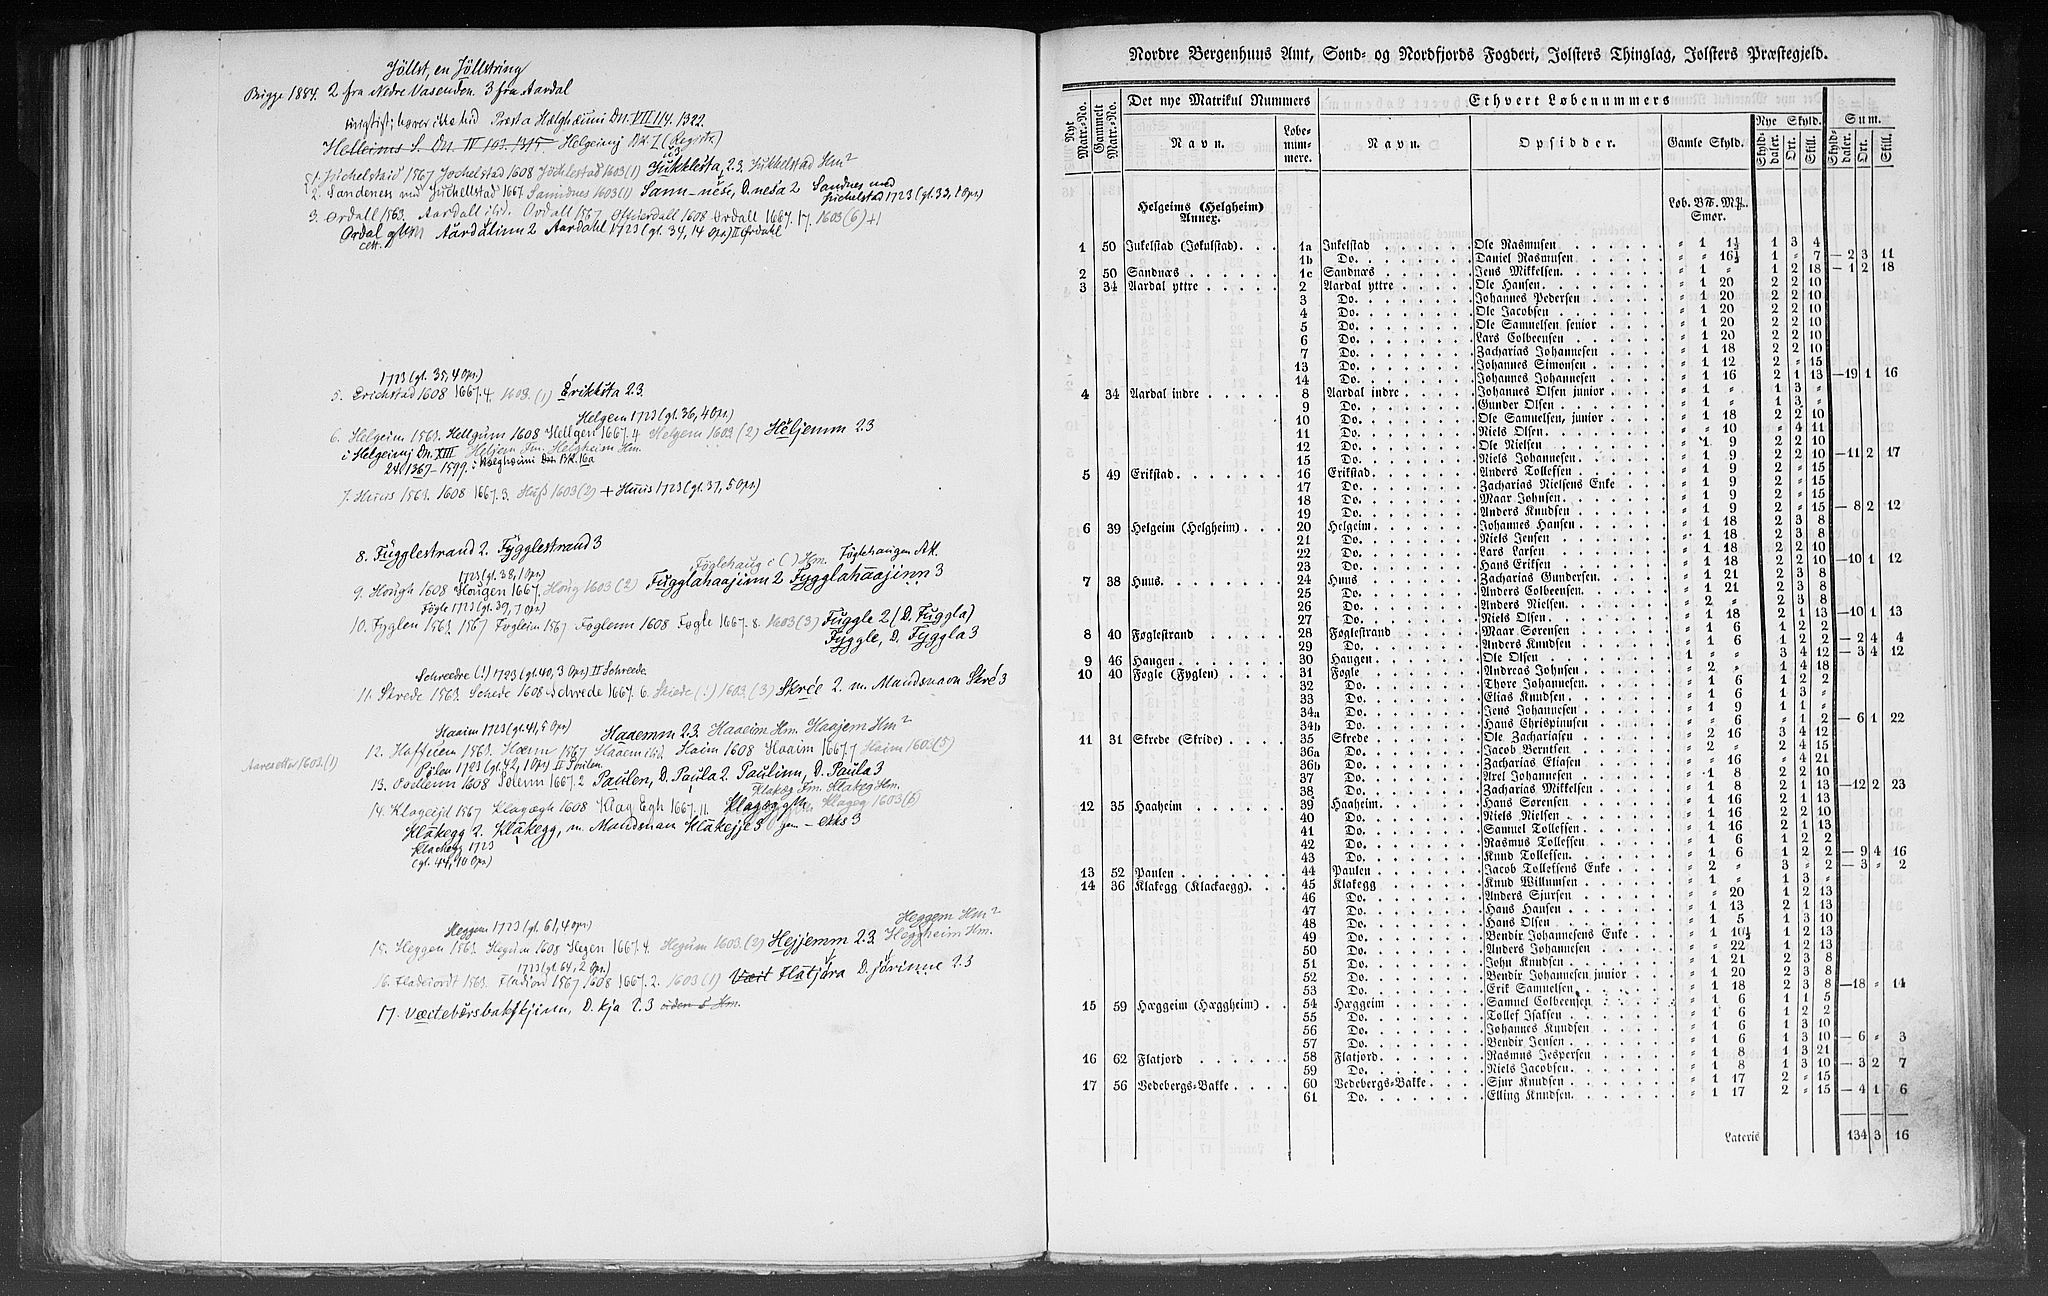 Jöllst, en Jöllstring
Brigge 1884. 2 fra Nedre Vasenden. 3 fra Aardal
urigtigt; hører ikke hid Præsta Hælghæimi Dn. VII 114. 1322.
Helleims S. Dn. IV 102. 1315. Helgeimj BK. (Registr.)
1. Jochelstad 1608 Jöchlestad 1603 (1) Jukklèsta, 2.3. Jukkelstad Hm²
2. Sandenes med Juchellstad 1667. Sannidnes 1603 (1) Sann-nèse, D. nesa 2 Sandnes med
Juchelstad 1723 (gl. 33, 1 Opr)
3. Ordall 1563. Aardall ibid. Ordall 1567 1608 Ordall 1667. 17. 1603 (6) +1
Aardalinn 2 Aardahl 1723 (gl. 34, 14 Opr) II Ordahl
1723 (gl. 35, 4 Opr.)
5. Erichstad 1608 1667. 4. 1603. (1) Erikksta 2.3.
Helgem 1723 (gl. 36, 4 Opr)
6. Helgeim 1563. Hellgum 1608 Hellgen 1667. 4 Helgem 1603 (2) Heljemm 2.3
i Helgeimj Dn. XIII Heljem Fm. Helgheim Hm.
24. 1367-1599.
7. Huus 1563. 1608 1667. 3. Huss 1603 (2) + Huus 1723 (gl. 37, 5 Opr)
8. Fugglestrand 2. Fygglestrand 3
Föglehaug i ( ) Hm. Föglehaugen AK.
1723 (gl. 38, 1 Opr)
9. Hough 1608 Hougen 1667. Houg 1603 (2) Fugglahaajinn 2 Fygglahaajinn 3
Fögle 1723 (gl. 39, 7 Opr)
10. Fyglen 1563. 1567 Fogleim 1567 Foglenn 1608 Fogle 1667. 8. 1603 (3) Fuggle 2 (D. Fuggla)
Fyggle, D. Fyggla 3
Schreedre (!) 1723 (gl. 40, 3 Opr) II Schreede
11. Skrede 1563. Schede 1608 Schrede 1667. 6. Skiede (!) 1603. (3) Skrée 2. m. Mandsnavn Skré 3
Haaim 1723 (gl. 41, 5 Opr) Haaemm 2.3. Haaeim Hm. Haajem Hm²
12. Hoffuem 1563. Hæim 1567 Haaem ibid. Haim 1608 Haaim 1667. 7 Haim 1603 (5)
Aaresetter 1603. (1)
Pölen 1723 (gl. 42, 1 Opr) II Poulen.
13. 1608 Polenn 1667. 2 Paulen, D. Paula 2 Paulinn, D. Paula 3
Klakæg Fm. Klakeg Hm.
14. Klogeijd 1567 Klogægh 1608 Klag Egh 1667. 11. Klagegg Klageg 1603 (6)
Klakegg 2. Klakegg, m. Mandsnavn Klakejje 3
Klackegg 1723
(gl. 44, 10 Opr)
Heggem Hm²
Heggem 1723 (gl. 61, 4 Opr)
15. Heggen 1563. Hegum 1608 Hegen 1667. 4. Hegum 1603. (2) Hejjemm 2.3. Heggheim Hm.
1723 (gl. 64, 2 Opr.)
16. Fladeiordt 1563. Fladiord 1567 1608 1667. 2. 1603 (1) Væit Flatjøra D. jørinne 2.3
17. Væitebærsbakkjinn, D. kja 2.3 siden 5 Hm.
Nordre Bergenhuus Amt, Sond- og Nordfjords Fogderi, Jolsters Thinglag, Jolsters Præstegjeld.
Nyt Matr.-No. Gammelt Matr.-No. Det nye Matrikul Nummers Ethvert Løbenummers
Nye Skyld. Sum.
Navn. Lobe-nummere. Navn. Opsidder. Gamle Skyld. Skylddaler. Ort. Skill. Skylddaler. Ort. Skill.
Helgeims (Helgheim) Annex. Lob. B℔. M℔. Smør.
1 50 Inkelstad (Jokulstad). 1a Inkelstad Ole Rasmusen " 1 1½ 1 3 4
1b Do. Daniel Rasmusen " " 16½ 1 " 7 — 2 3 11
2 50 Sandnæs 1c Sandnæs Jens Mikkelsen. " 1 " 1 2 18 — 1 2 18
3 34 Aardal yttre 2 Aardal yttre Ole Hansen " 1 20 2 2 10
3 Do. Johannes Pedersen " 1 20 2 2 10
4 Do. Ole Jacobsen " 1 20 2 2 10
5 Do. Ole Samuelsen senior " 1 20 2 2 10
6 Do. Lars Colbeensen " 1 20 2 2 10
7 Do. Zacharias Johannesen " 1 18 2 2 10
13 Do. Johannes Simonsen " 1 12 2 " 15
14 Do. Johannes Johannesen " 1 16 2 1 13 — 19 1 16
4 34 Aardal indre 8 Aardal indre Johannes Olsen junior " 1 " 1 3 "
9 Do. Gunder Olsen " 1 " 1 3 "
10 Do. Ole Samuelsen, junior " 1 18 2 2 10
11 Do. Niels Olsen " " 10 " 4 11
12 Do. Ole Nielsen " 1 9 2 2 10
15 Do. Niels Johannesen " 1 9 2 2 10 — 11 2 17
5 49 Erikstad 16 Erikstad Anders Tollefsen " 1 9 2 " 15
17 Do. Zacharias Nielsens Enke " 1 9 2 " 15
18 Do. Maar Johnsen " 1 9 2 " 15
19 Do. Anders Knudsen " 1 9 2 " 15 — 8 2 12
6 39 Helgeim (Helgheim) 20 Helgeim Johannes Hansen " 1 18 2 3 8
21 Do. Niels Jensen " 1 18 2 3 8
22 Do. Lars Larsen " 1 18 2 2 10
23 Do. Hans Eriksen " 1 18 2 2 10 — 10 1 12
7 38 Huus 24 Huus Zacharias Gundersen " 1 21 2 3 8
25 Do. Anders Colbeensen " 1 21 2 3 8
26 Do. Anders Nielsen " 2 " 2 3 8
27 Do. Niels Olsen " 1 18 2 1 13 — 10 1 13
8 40 Foglestrand 28 Foglestrand Maar Sørensen " 1 6 1 2 2
29 Do. Anders Knudsen " 1 6 1 2 2 — 2 4 4
9 46 Haugen 30 Haugen Ole Olsen 1 " " 3 4 12 — 3 4 12
10 40 Fogle (Fyglen) 31 Fogle Andreas Johnsen " 2 " 1 4 18
32 Do. Thore Johannesen " 1 6 1 2 2
33 Do. Elias Knudsen " 1 6 1 3 "
34a Do. Jens Johannesen " 1 9 1 1 "
34b Do. Hans Chrispinusen " " 6 " 1 2 — 6 1 22
11 31 Skrede (Skride) 35 Skrede Ole Zachariasen " 2 16 3 4 12
36a Do. Jacob Berntsen " 2 " 2 4 15
36b Do. Zacharias Eliasen " " 16 " 4 21
37 Do. Axel Johannesen " 1 8 2 2 10
38 Do. Zacharias Mikkelsen " 1 8 2 1 13 — 12 2 23
12 35 Haaheim 39 Haaheim Hans Sørensen " 1 16 2 1 13
40 Do. Niels Nielsen " 1 16 2 2 10
41 Do. Samuel Tollefsen " 1 16 2 1 13
42 Do. Rasmus Tollefsen " 1 6 1 2 2
43 Do. Knud Tollefsen " 1 6 1 2 2 — 9 4 16
13 52 Paulen 44 Paulen Jacob Tollefsens Enke " 2 " 3 " 2 — 3 " 2
14 36 Klakegg (Klackaegg) 45 Klakegg Knud Willumsen " 1 " 1 3 "
46 Do. Anders Sjursen " " 20 1 2 13
47 Do. Hans Hansen " 1 13 2 1 13
48 Do. Hans Olsen " 1 5 1 3 10
49 Do. Bendix Johannesens Enke " 1 10½ 1 2 13
50 Do. Anders Johannesen " " 22 1 2 13
51 Do. John Knudsen " 1 21 2 3 8
52 Do. Bendix Johannesen junior " 1 20 2 3 8
53 Do. Erik Samuelsen " 1 18 2 3 8 — 18 " 14
15 59 Hæggeim (Hæggheim) 54 Hæggeim Samuel Colbeensen " 1 6 1 1 5
55 Do. Tollef Isaksen " 1 6 1 2 2
56 Do. Johannes Knudsen " 1 6 1 3 10
57 Do. Bendix Jensen " 1 6 1 3 10 — 6 " 3
16 62 Flatjord 58 Flatjord Rasmus Jespersen " 1 8 1 3 21
59 Do. Niels Jacobsen " 1 8 1 3 10 — 3 2 7
17 56 Vedebergs-Bakke 60 Vedebergs-Bakke Sjur Knudsen " 1 17 2 " 15
61 Do. Elling Knudsen " 1 17 2 " 15 — 4 1 6
Lateris 134 3 16